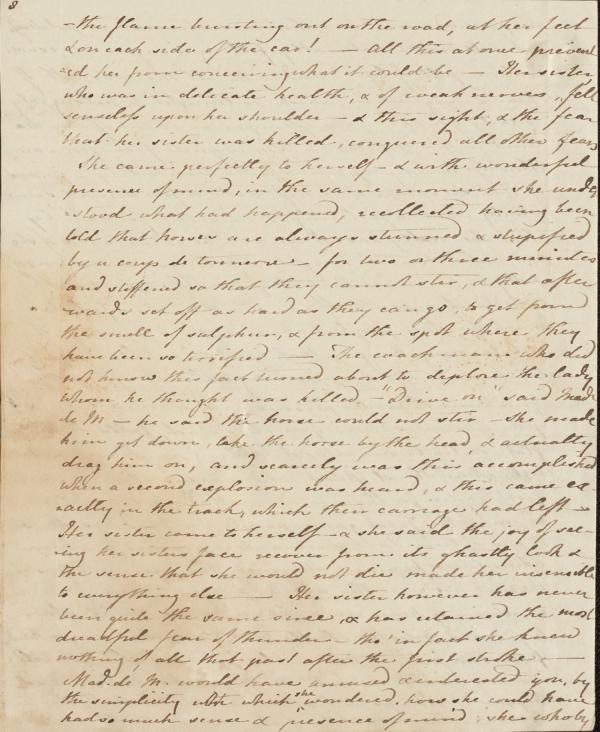 8
- the flame bursting out on the road, at her feet
& on each side of the car! — all this at once prevent
-ed her from conceiving what it could be — Her sister
who was in delicate health, & of weak nerves, fell
senseless upon her shoulder — & this sight, & the fear
that her sister was killed, conquered all other fears
She came perfectly to herself — & with wonderful
presence of mind, in the same moment she under
-stood what had happened, recollected having been
told that horses are always stunned & stupified
by a coup de tonnerre — for two or three minutes
and stiffened so that they cannot stir, & that after
wards set off as hard as they can go, to get from
the smell of sulphur, & from the spot where they
have been so terrified — The coachman who did
not know this fact turned about to deplore the lady
whom he thought was killed — "Drive on" said Made
de M — he said the horse could not stir — she made
him get down, take the horse by the head, & actually
drag him on, and scarcely was this accomplished
when a second explosion was heard, & this came ex
-actly in the track, which their carriage had left —
Her sister came to herself — & she said the joy of see-
-ing her sisters face recover from its ghastly look &
the sense that she would not die made her insensible
to everything else — Her sister however has never
been quite the same since, & has retained the most
dreadful fear of thunder — tho' in fact she knew
nothing of all that past after the first stroke —
Mad. de M. would have amused & interested you, by
the simplicity with which she wondered, how she could have
had so much sense & presence of mind; she who by